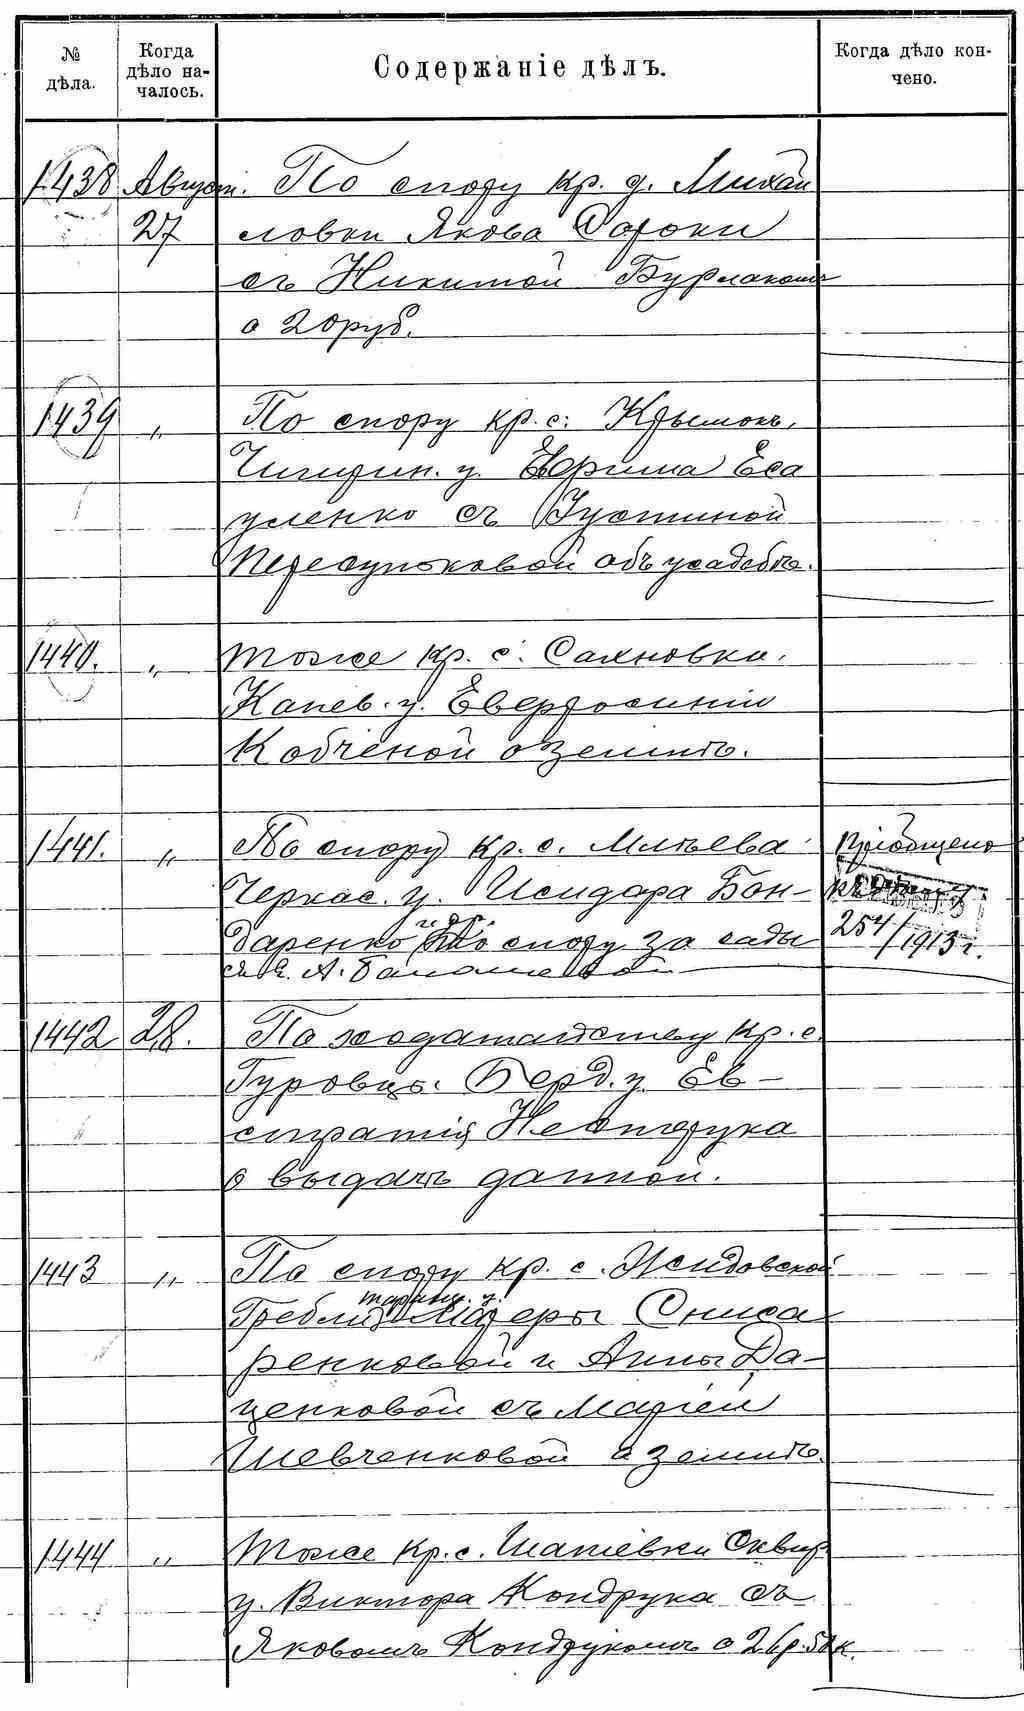 № дѣла.
Когда дѣло на-
чалось.
Содержаніе дѣлъ.
Когда дѣло кон-
чено.
1438 Август. По спору кр. д. Михай
27 ловки Якова Сороки
съ Никитой Бурлакомъ
о 20 руб.
1439 „ По спору кр. с. Крымокъ,
Чигирин. у. Ефрима Еса
уленко съ Устиной
Пересунковой объ усадьбѣ.
1440. „ Тоже кр. с. Сахновки,
Канев. у. Евфросиніи
Кобченой о землѣ.
1441. „ По спору кр. с. Млѣева Пріобщено
Черкас. у. Исидора Бон- къ
даренко и др. По спору за сады 254/1913 г.
съ А. Балашевой
1442 28. По ходатайству кр. с.
Гуровцы. Берд. у. Ев-
стратія Неопорука
о выдачѣ данной.
1443 „ По спору кр. с.
Гребли таращ. у. Мотры Сниса
ренковой и Анны Да-
ценковой съ Маріей
Шевченковой о землѣ.
1444 „ Тоже кр. с. Шапіевки Сквир.
у. Виктора Кондрука съ
Яковомъ Кондрукомъ о 26 р. 50 к.